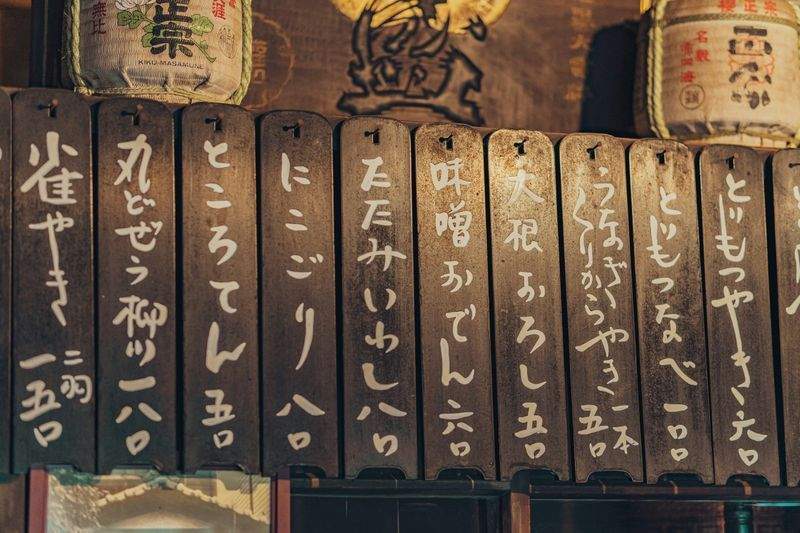 正宗
KIKU-MASAMUNE
正宗
雀やき 二羽 一五〇
丸どぜう柳川 一八〇
ところてん 五〇
にこごり 八〇
たたみいわし 八〇
味噌おでん 六〇
大根おろし 五〇
うなぎくりからやき 一本 五〇
とじもつなべ 一〇〇
とじもつやき 六〇